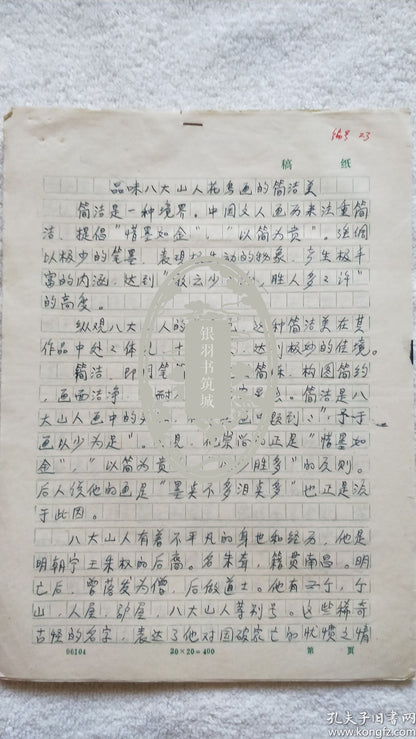 编号 23
稿 纸
品味八大山人花鸟画的简洁美
简洁是一种境界。中国文人画历来注重简
洁，提倡“惜墨如金”，“以简为贵”。强调
以极少的笔墨，表现生动的物象，产生极丰
富的内涵，达到“少许，胜人多之许”
的高度。
纵观八大人的，这种简洁美在其
作品中处之体现，十，达到极妙的佳境。
简洁，即用笔简练，构图简约
，画面洁净，耐。简洁是八
大山人画中的画中题到：“予于
画以少为足”。见，他崇尚的正是“惜墨如
金”，“以简为贵”，“胜多”的原则。
后人说他的画是“墨点不多泪点多”也正是源
于此因。
八大山人有着不平凡的身世和经历，他是
明朝宁王朱权的后裔。名朱耷，籍贯南昌。明
亡后，曾落发为僧，后做道士。他有个，
山，人屋，驴屋，八大山人等别号。这些稀奇
古怪的名字，表达了他对国破家亡的忧愤之情
06104
20×20=400
第 页
银羽书筑城
孔夫子旧书网
www.kongfz.com